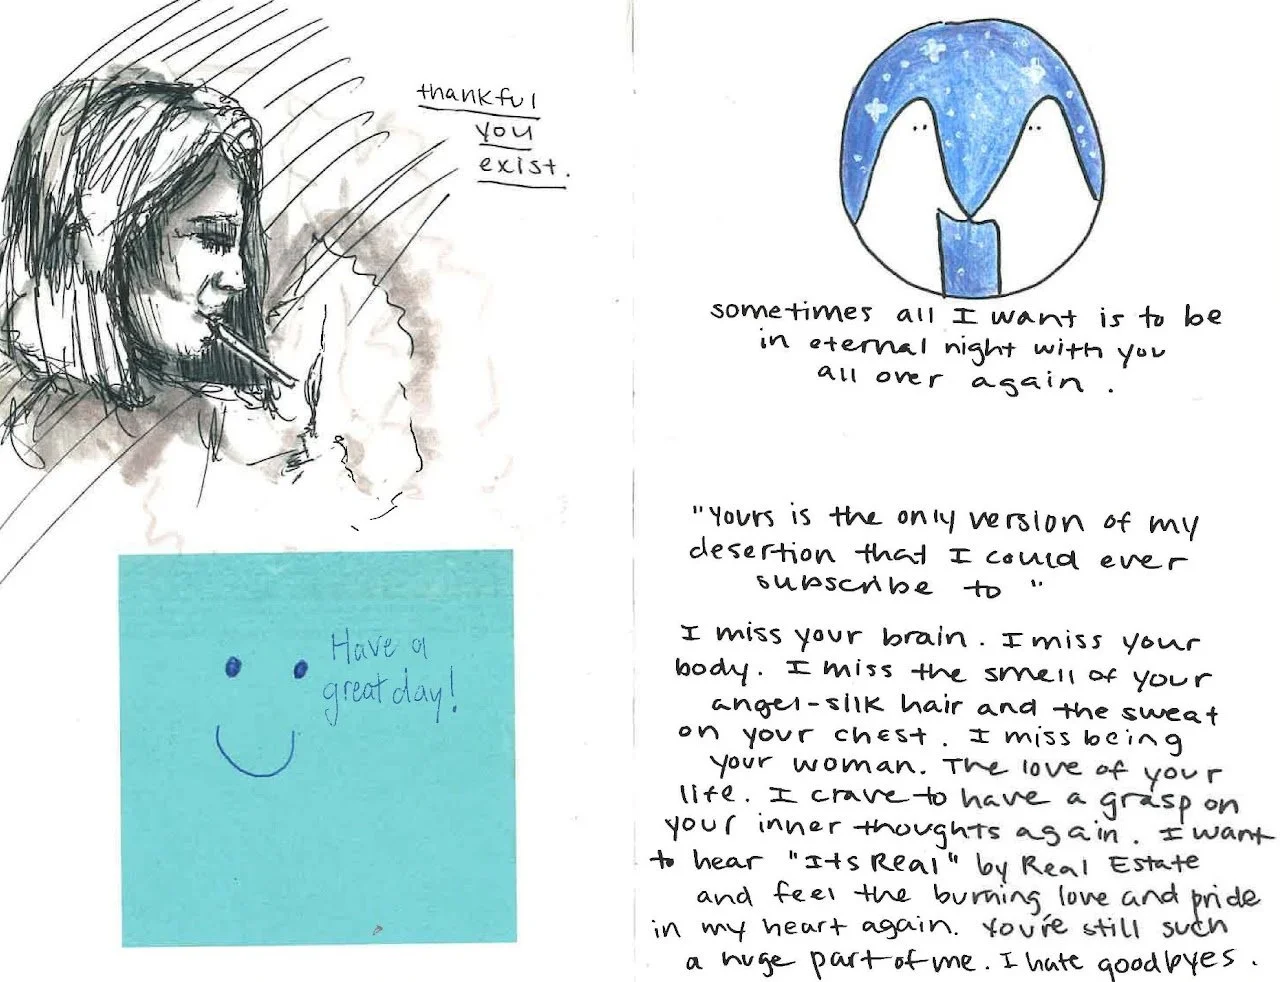 thankful
you
exist.
Have a
great day!
sometimes all I want is to be
in eternal night with you
all over again.
"Yours is the only version of my
desertion that I could ever
subscribe to"
I miss your brain. I miss your
body. I miss the smell of your
angel-silk hair and the sweat
on your chest. I miss being
your woman. The love of your
life. I crave to have a grasp on
your inner thoughts again. I want
to hear "Its Real" by Real Estate
and feel the burning love and pride
in my heart again. You're still such
a huge part of me. I hate goodbyes.